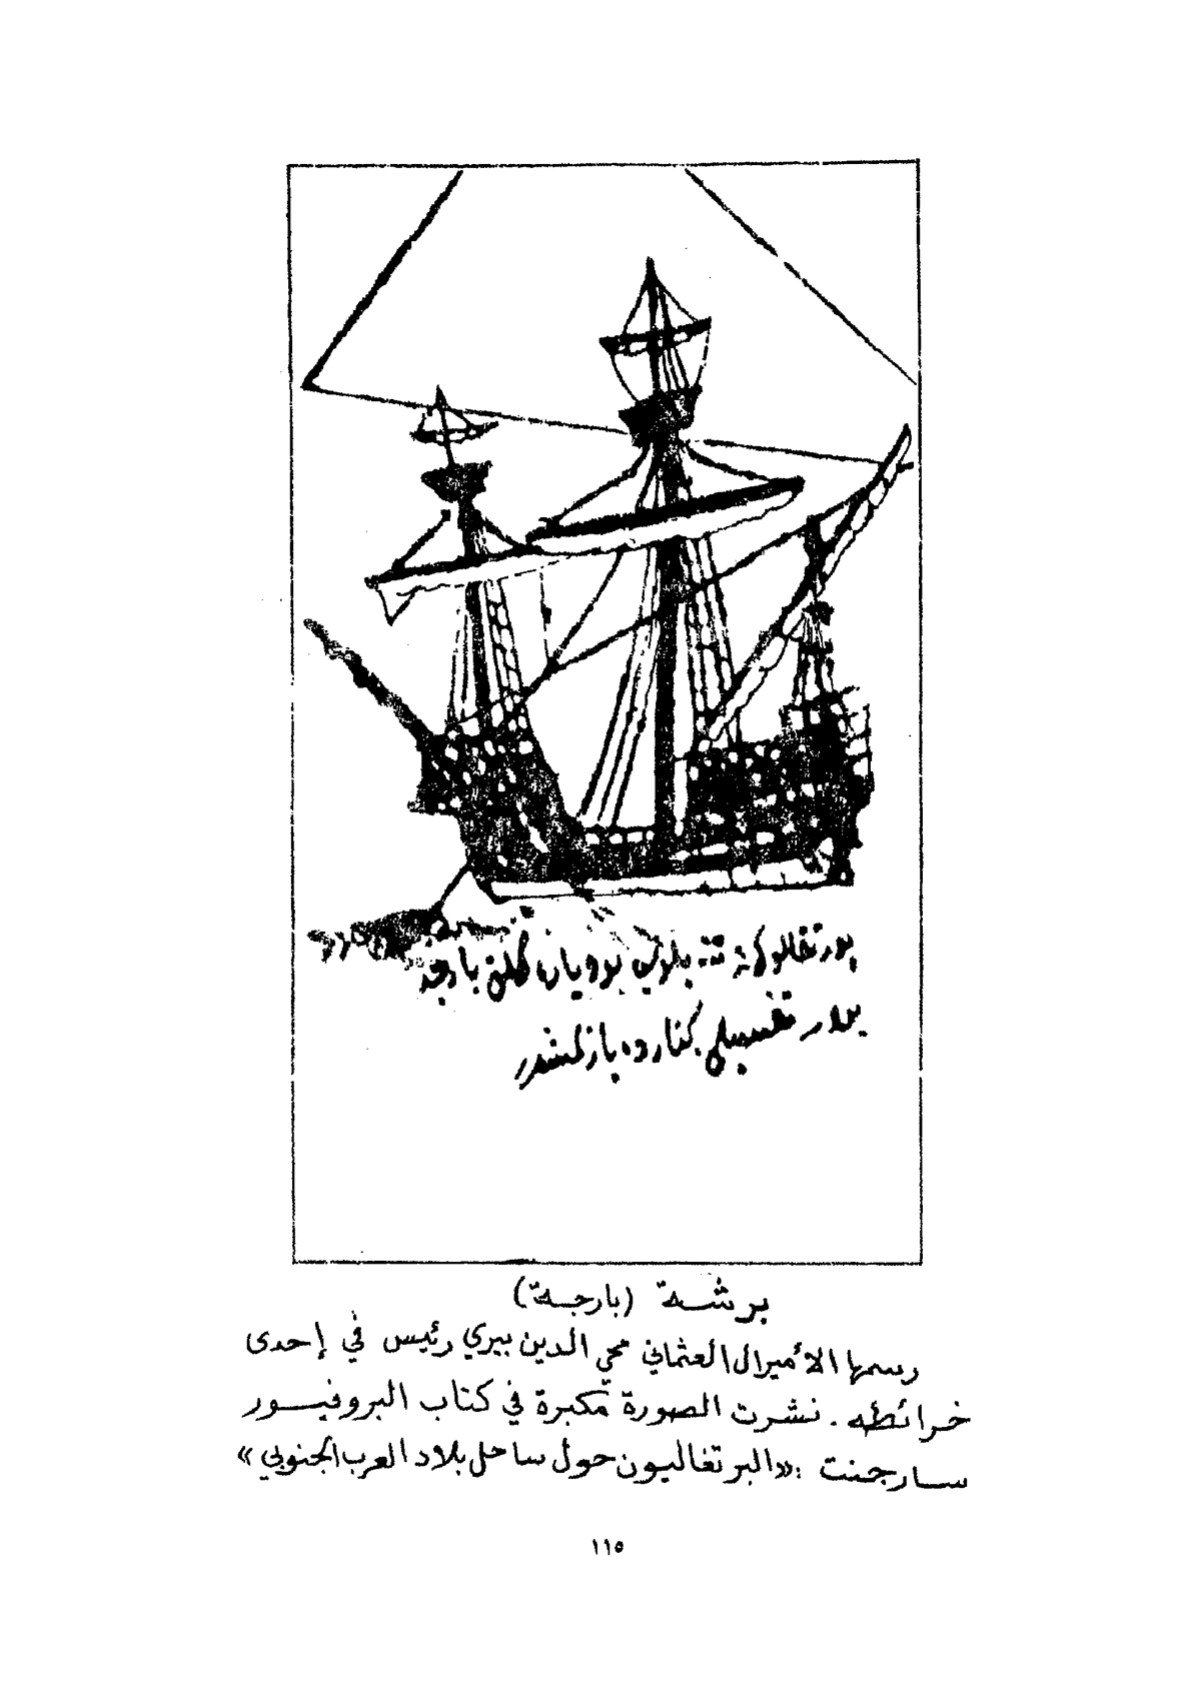 بارجه
كنارده يازلمشدر
برشة (بارجة)
رسمها الأميرال العثماني محي الدين بيري رئيس في إحدى
خرائطه . نشرت الصورة مكبرة في كتاب البروفيسور
سارجنت : «البرتغاليون حول ساحل بلاد العرب الجنوبي»
١١٥